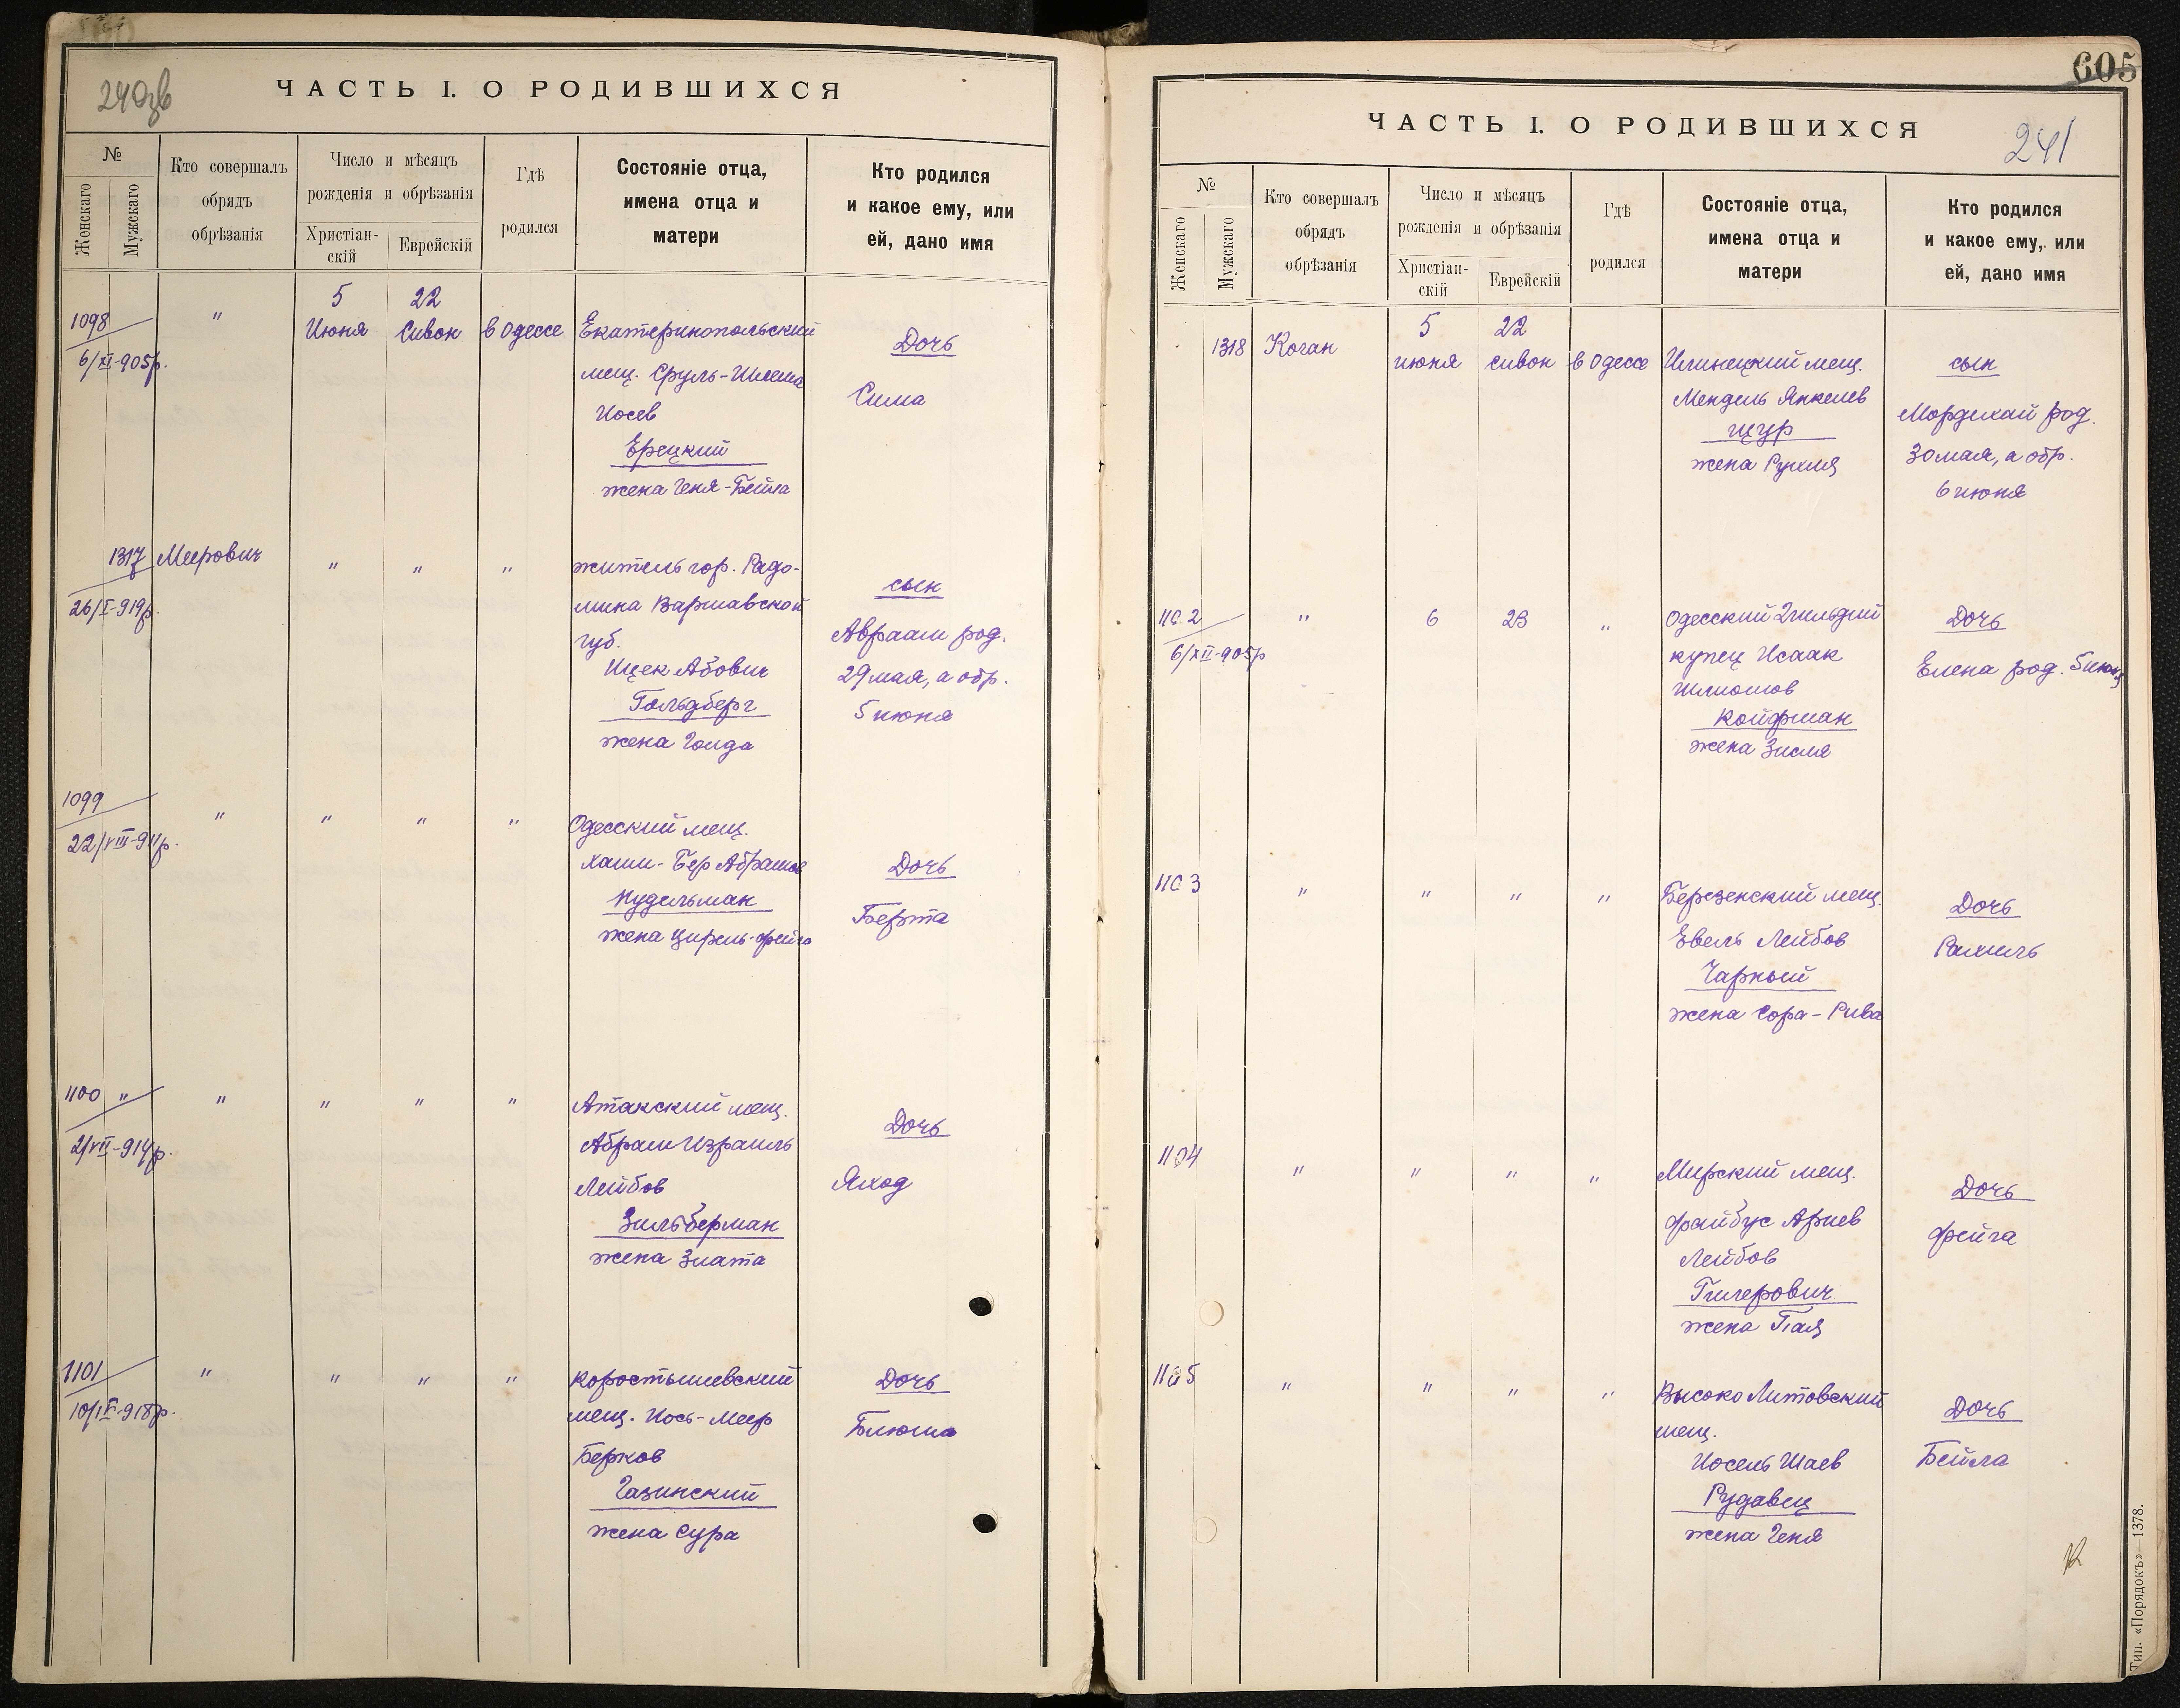 240зв
ЧАСТЬ I. О РОДИВШИХСЯ
№
Женскаго
Мужскаго
Кто совершалъ
обрядъ
обрѣзанія
Число и мѣсяцъ
рожденія и обрѣзанія
Христіан-
скій
Еврейскій
Гдѣ
родился
Состояніе отца,
имена отца и
матери
Кто родился
и какое ему, или
ей, дано имя
1098
6/XI-905р.
"
5
Июня
22
Сивон
в Одессе
Екатеринопольский
мещ. Сруль-Шлема
Иосев
Ерецкий
жена Геня-Бейла
Дочь
Сима
1317
26/I-919р.
Меерович
" " "
житель гор. Радо-
мина Варшавской
губ.
Ицек Абович
Гольдберг
жена Голда
сын
Авраам род.
29 мая, а обр.
5 июня
1099
22/VIII-911р.
" " " "
Одесский мещ.
Хаим-Бер Абрамов
Нудельман
жена Цирель-Фейга
Дочь
Берта
1100 "
2/VII-914р.
" " " "
Атакский мещ.
Абрам Израиль
Лейбов
Зильберман
жена Злата
Дочь
Яход
1101
-918р.
" " " "
Коростышевский
мещ. Иось-Меер
Берков
Газинский
жена Сура
Дочь
Блюма
605
ЧАСТЬ I. О РОДИВШИХСЯ
241
№
Женскаго
Мужскаго
Кто совершалъ
обрядъ
обрѣзанія
Число и мѣсяцъ
рожденія и обрѣзанія
Христіан-
скій
Еврейскій
Гдѣ
родился
Состояніе отца,
имена отца и
матери
Кто родился
и какое ему, или
ей, дано имя
1318
Коган
5
июня
22
сивон
в Одессе
Илинецкий мещ.
Мендель Янкелев
Щур
жена Рухля
сын
Мордехай род.
30 мая, а обр.
6 июня
1102
6/XII-905р
"
6
23
"
Одесский 2 гильдии
купец Исаак
Шлиомов
Койфман
жена Зисля
Дочь
Елена род. 5 июня
1103
" " " "
Березенский мещ.
Евель Лейбов
Чарный
жена Сора-Рива
Дочь
Рахиль
1104
" " " "
Мирский мещ.
Файбус Ариев
Лейбов
Гилерович
жена Пая
Дочь
Фейга
1105
" " " "
Высоко Литовский
мещ.
Иосель Шаев
Рудавец
жена Геня
Дочь
Бейла
Тип. «Порядокъ»—1378.